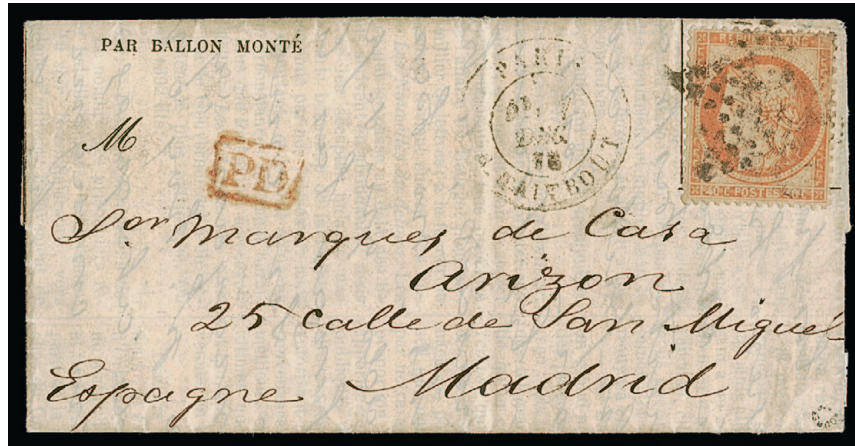 PAR BALLON MONTÉ
PARIS
DÉC
R. TAITBOUT
REPUB. FRANC.
40 C. POSTES 40 C.
M
PD
Sor Marques de Casa
Arizon
25 calle de San Miguel
Espagne Madrid